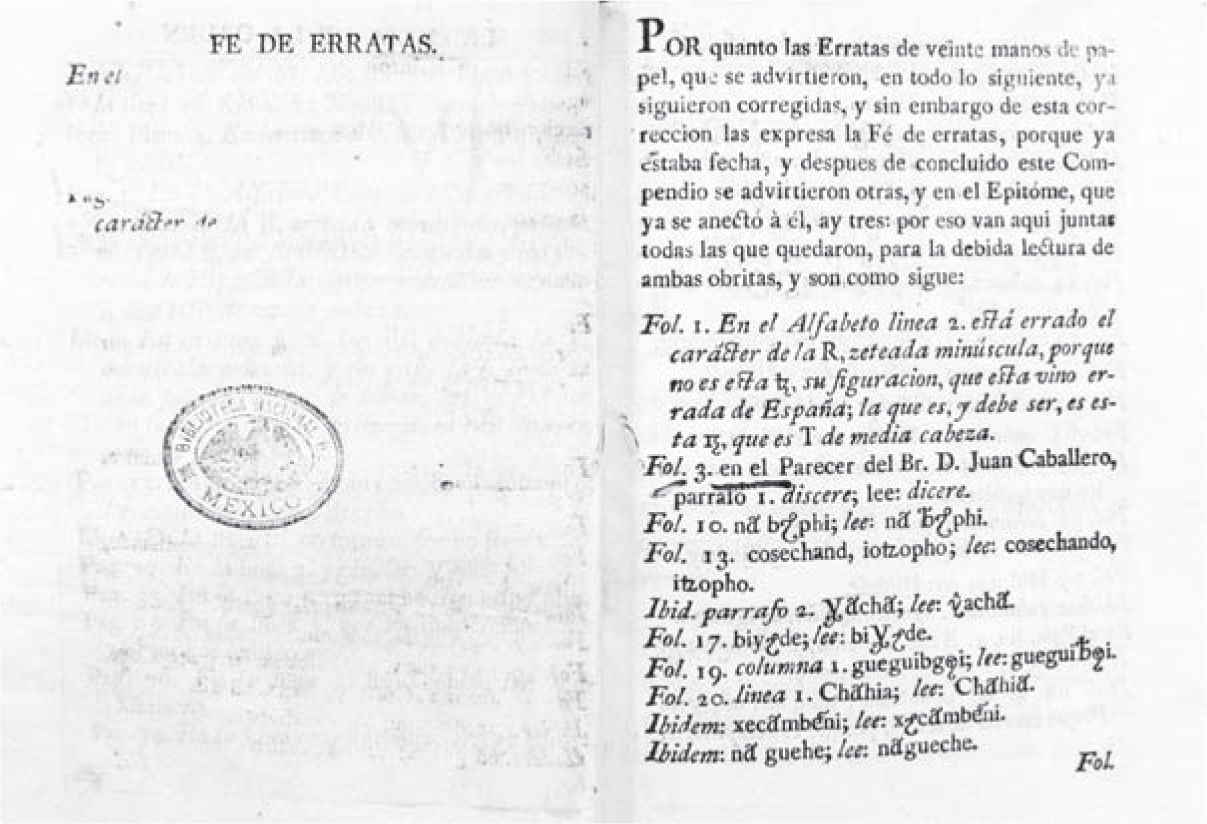 FE DE ERRATAS.
En el
carácter de la R,
BIBLIOTECA NACIONAL
MEXICO
POR quanto las Erratas de veinte manos de pa-
pel, que se advirtieron, en todo lo siguiente, ya
siguieron corregidas, y sin embargo de esta cor-
reccion las expresa la Fé de erratas, porque ya
estaba fecha, y despues de concluido este Com-
pendio se advirtieron otras, y en el Epitóme, que
ya se anectó à él, ay tres: por eso van aqui juntas
todas las que quedaron, para la debida lectura de
ambas obritas, y son como sigue:
Fol. 1. En el Alfabeto linea 2. está errado el
carácter de la R, zeteada minúscula, porque
no es esta su figuracion, que esta vino er-
rada de España; la que es, y debe ser, es es-
ta que es T de media cabeza.
Fol. 3. en el Parecer del Br. D. Juan Caballero,
parrafo 1. discere; lee: dicere.
Fol. 10. lee:
Fol. 13. cosechand, iotzopho; lee: cosechando,
itzopho.
Ibid. parrafo 2. lee:
Fol. 17. lee:
Fol. 19. columna 1. lee:
Fol. 20. linea 1. Chãhia; lee: Chãhiã.
Ibidem: xecãmbẽni; lee:
Ibidem: nã guehe; lee: nãgueche.
Fol.